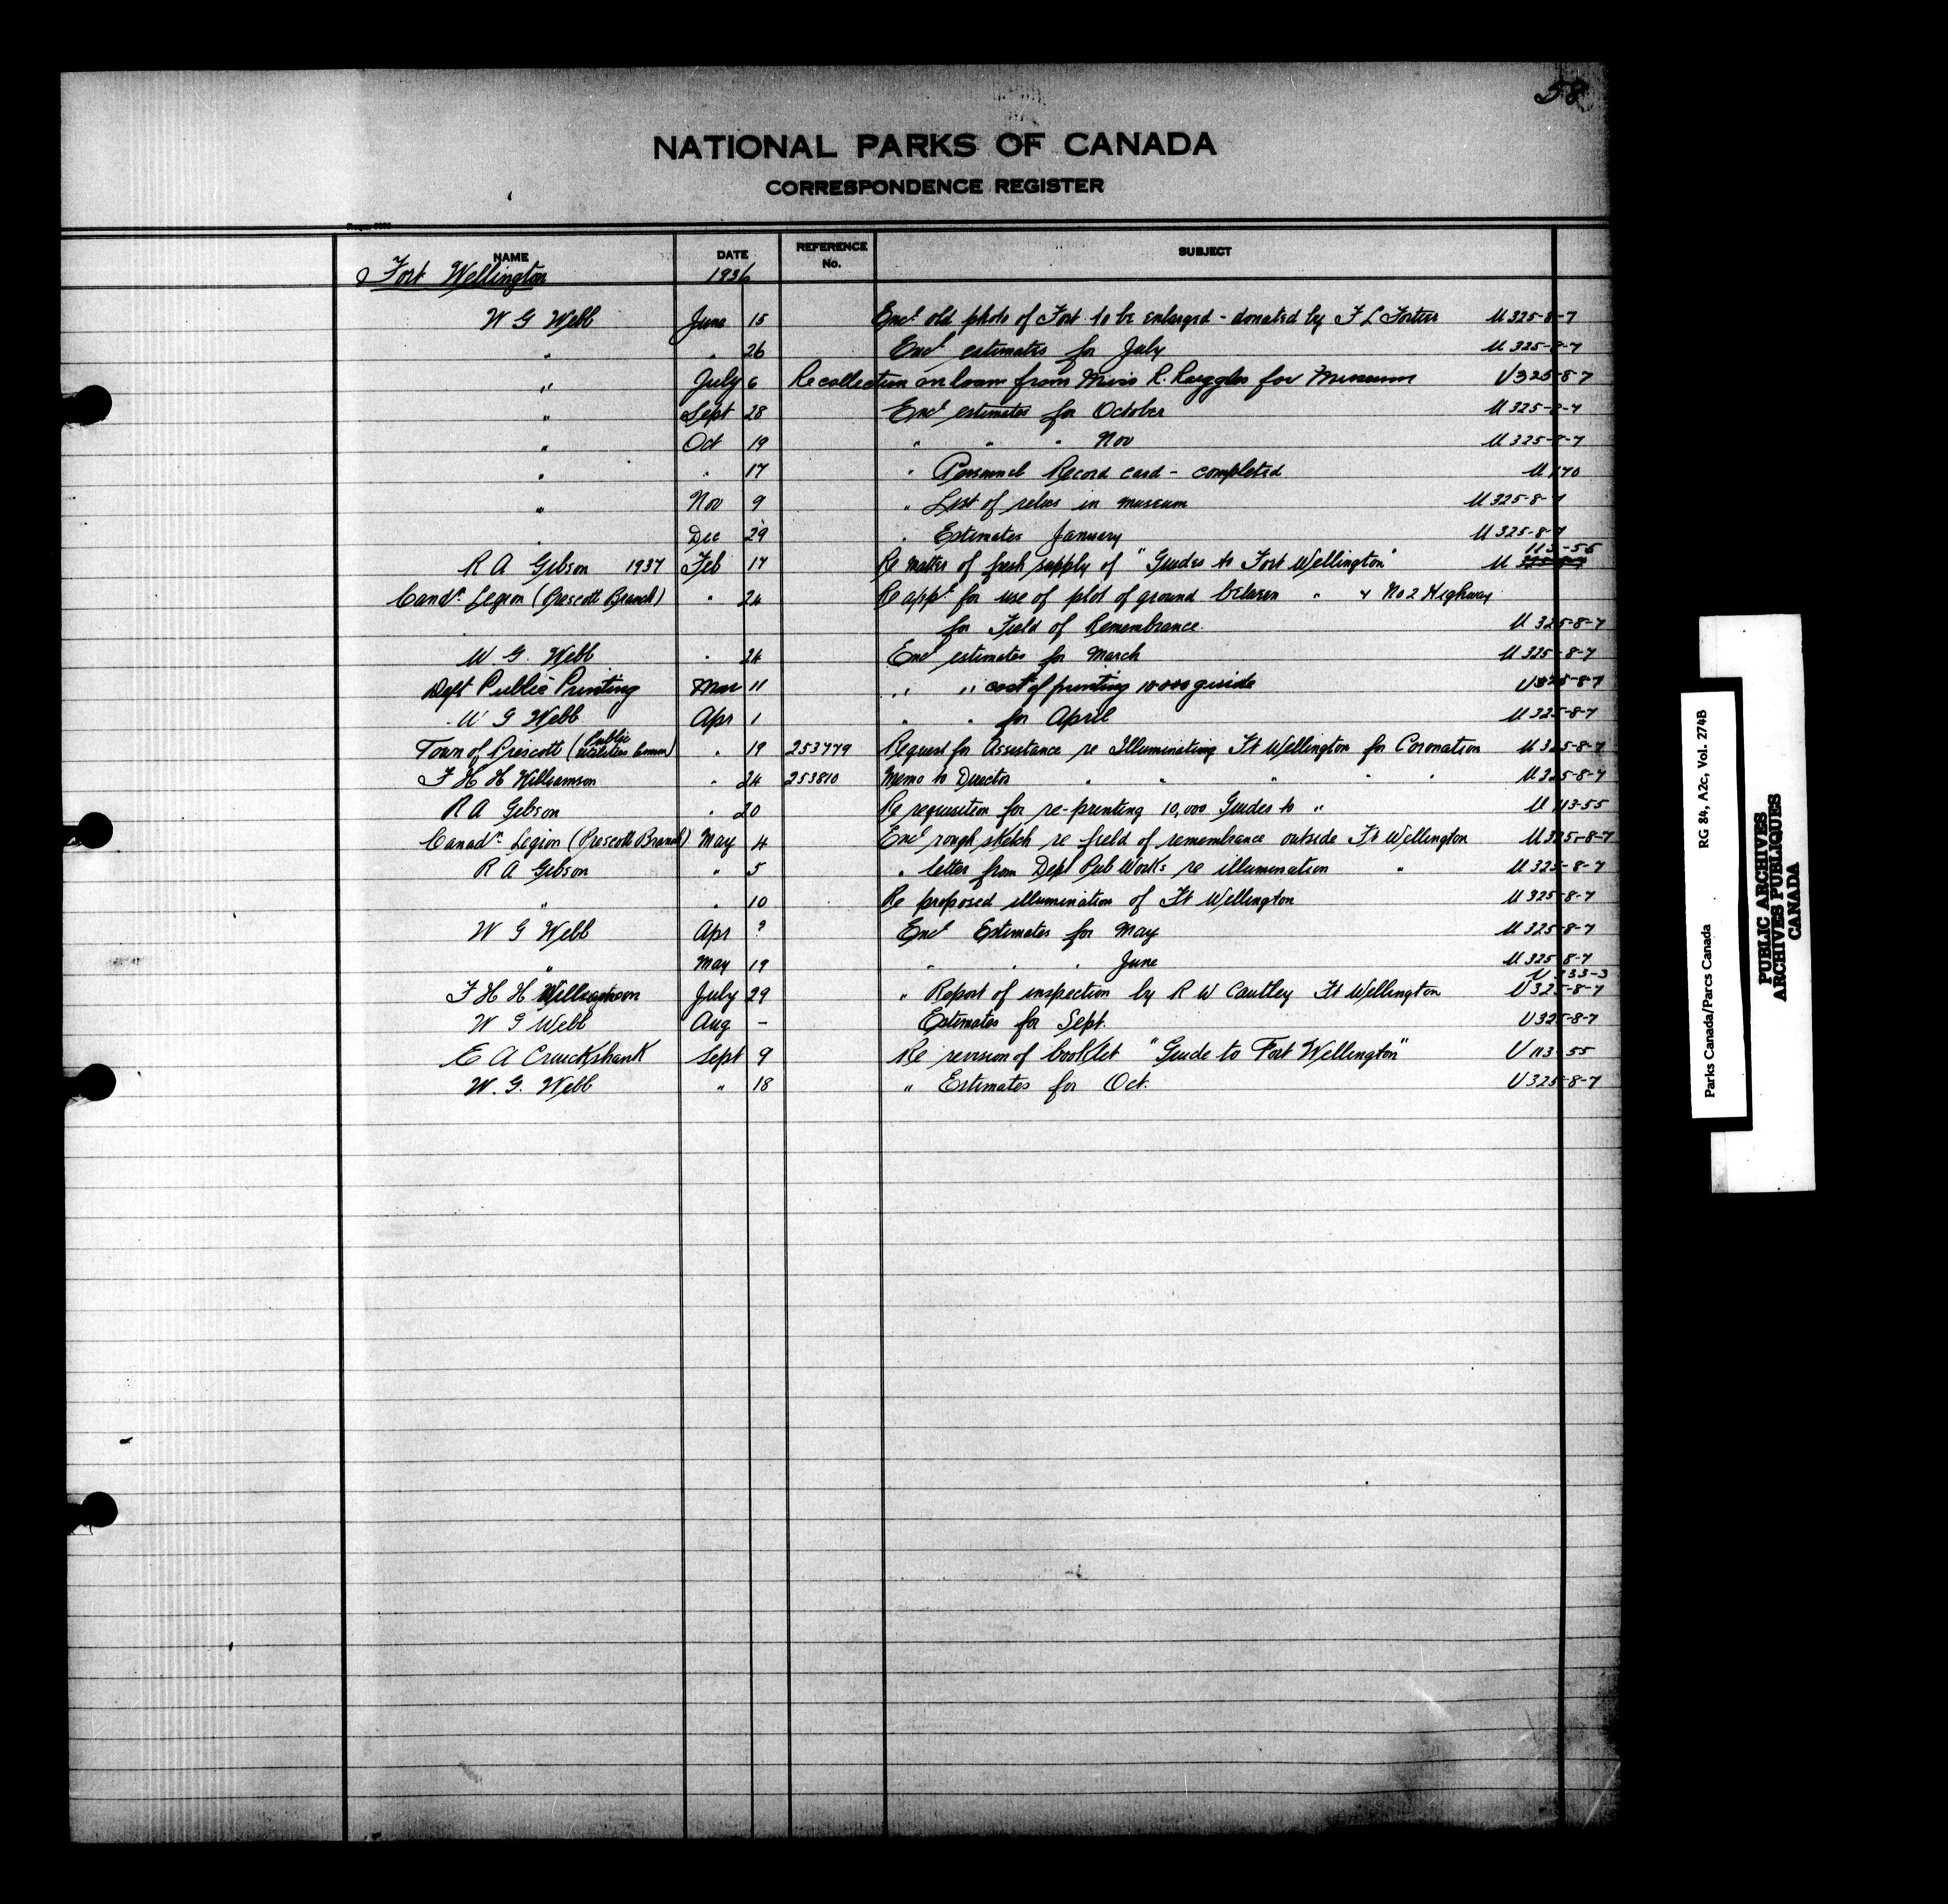 58
NATIONAL PARKS OF CANADA
CORRESPONDENCE REGISTER
NAME DATE REFERENCE No. SUBJECT
Fort Wellington 1936
W G Webb June 15 Encl old photo of Fort to be enlarged - donated by F L Forster U 325-8-7
" " 26 Encl estimates for July U 325-8-7
" July 6 Re collection on loan from Miss R. Ruggles for Museum U325-8-7
" Sept 28 Encl estimates for October U 325-8-7
" Oct 19 " " " Nov U 325-8-7
" " 17 " Personnel Record card - completed U 170
" Nov 9 " List of relics in museum U 325-8-7
" Dec 29 " Estimates January U 325-8-7
R A Gibson 1937 Feb 17 Re matter of fresh supply of "Guides to Fort Wellington" U 113-55
Candn Legion (Prescott Branch) " 24 Re appn for use of plot of ground between " & No 2 Highway
for Field of Remembrance. U 325-8-7
W. G. Webb " 24 Encl estimates for March U 325-8-7
Dept Public Printing Mar 11 " " cost of printing 10000 guide U325-8-7
W G Webb Apr 1 " " for April U 325-8-7
Town of Prescott (Public Utilities Comm) " 19 253779 Request for Assistance re Illuminating Ft Wellington for Coronation U 325-8-7
F H H Williamson " 24 253810 Memo to Director " " " " " U 325-8-7
R A Gibson " 20 Re requisition for re-printing 10,000 Guides to " U 113-55
Canadn Legion (Prescott Branch) May 4 Encl rough sketch re field of remembrance outside Ft Wellington U 325-8-7
R A Gibson " 5 " letter from Dept Pub Works re illumination " U 325-8-7
" " 10 Re proposed illumination of Ft Wellington U 325-8-7
W G Webb Apr ? Encl Estimates for May U 325-8-7
" May 19 " " " June U 325-8-7
F H H Williamson July 29 " Report of inspection by R W Cautley Ft Wellington U 325-8-7
W G Webb Aug - Estimates for Sept. U325-8-7
E A Cruickshank Sept 9 Re revision of booklet "Guide to Fort Wellington" U 113-55
W. G. Webb " 18 " Estimates for Oct. U 325-8-7
Parks Canada/Parcs Canada RG 84, A2c, Vol. 274B
PUBLIC ARCHIVES
ARCHIVES PUBLIQUES
CANADA